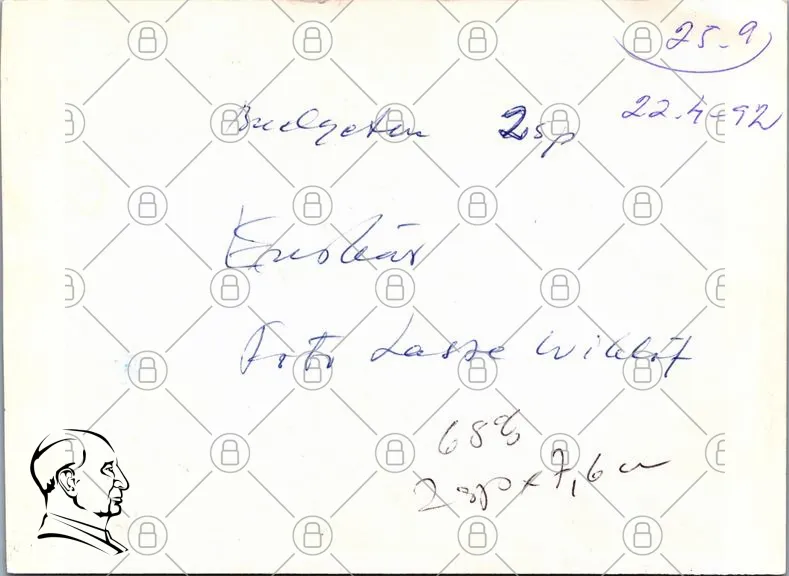 25-9
22.4-92
Budgeten 2sp
Enskär
Foto Lasse Wiklöf
68%
2 sp x 7,6 cm